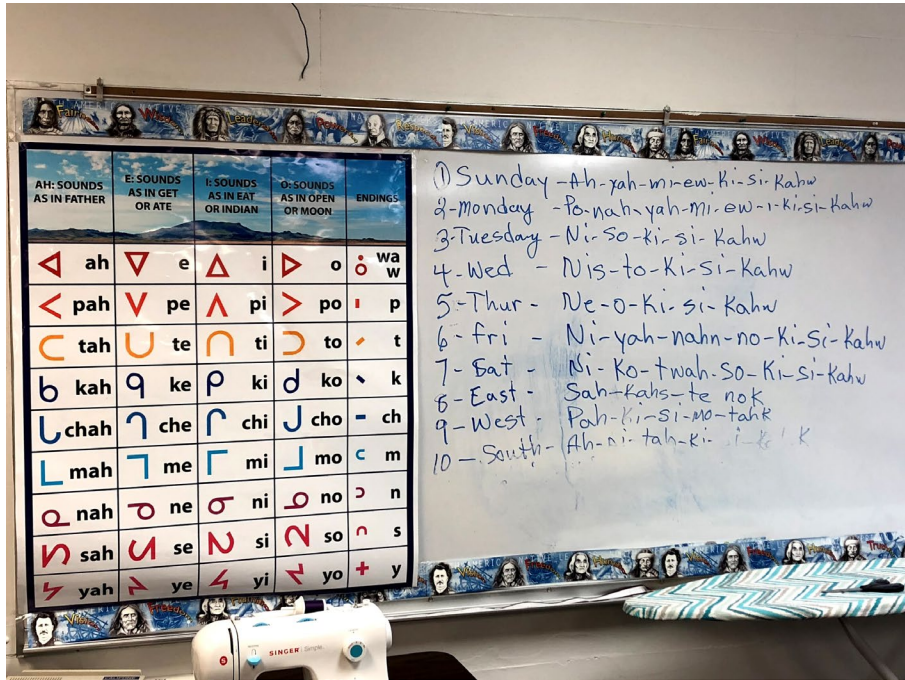 AH: SOUNDS AS IN FATHER
E: SOUNDS AS IN GET OR ATE
I: SOUNDS AS IN EAT OR INDIAN
O: SOUNDS AS IN OPEN OR MOON
ENDINGS
ᐊ ah ᐁ e ᐃ i ᐅ o ᐧ wa ᐤ w
ᐸ pah ᐯ pe ᐱ pi ᐳ po ᑊ p
ᑕ tah ᑌ te ᑎ ti ᑐ to ᐟ t
ᑲ kah ᑫ ke ᑭ ki ᑯ ko ᐠ k
ᒐ chah ᒉ che ᒋ chi ᒍ cho ᐨ ch
ᒪ mah ᒣ me ᒥ mi ᒧ mo ᒼ m
ᓇ nah ᓀ ne ᓂ ni ᓄ no ᐣ n
ᓴ sah ᓭ se ᓯ si ᓱ so ᐢ s
ᔭ yah ᔦ ye ᔨ yi ᔪ yo + y
① Sunday - Ah-yah-mi-ew-Ki-si-Kahw
2-monday - Po-nah-yah-mi-ew-i-ki-si-Kahw
3-Tuesday - Ni-So-ki-si-Kahw
4-Wed - Nis-to-Ki-Si-Kahw
5-Thur - Ne-o-Ki-si-Kahw
6-fri - Ni-yah-nahn-no-Ki-Si-Kahw
7-Sat - Ni-Ko-twah-So-Ki-Si-Kahw
8-East - Sah-Kahs-te nok
9-West - Pah-Ki-Si-mo-tahk
10-South - Ah-ni-tah-Ki-
SINGER Simple